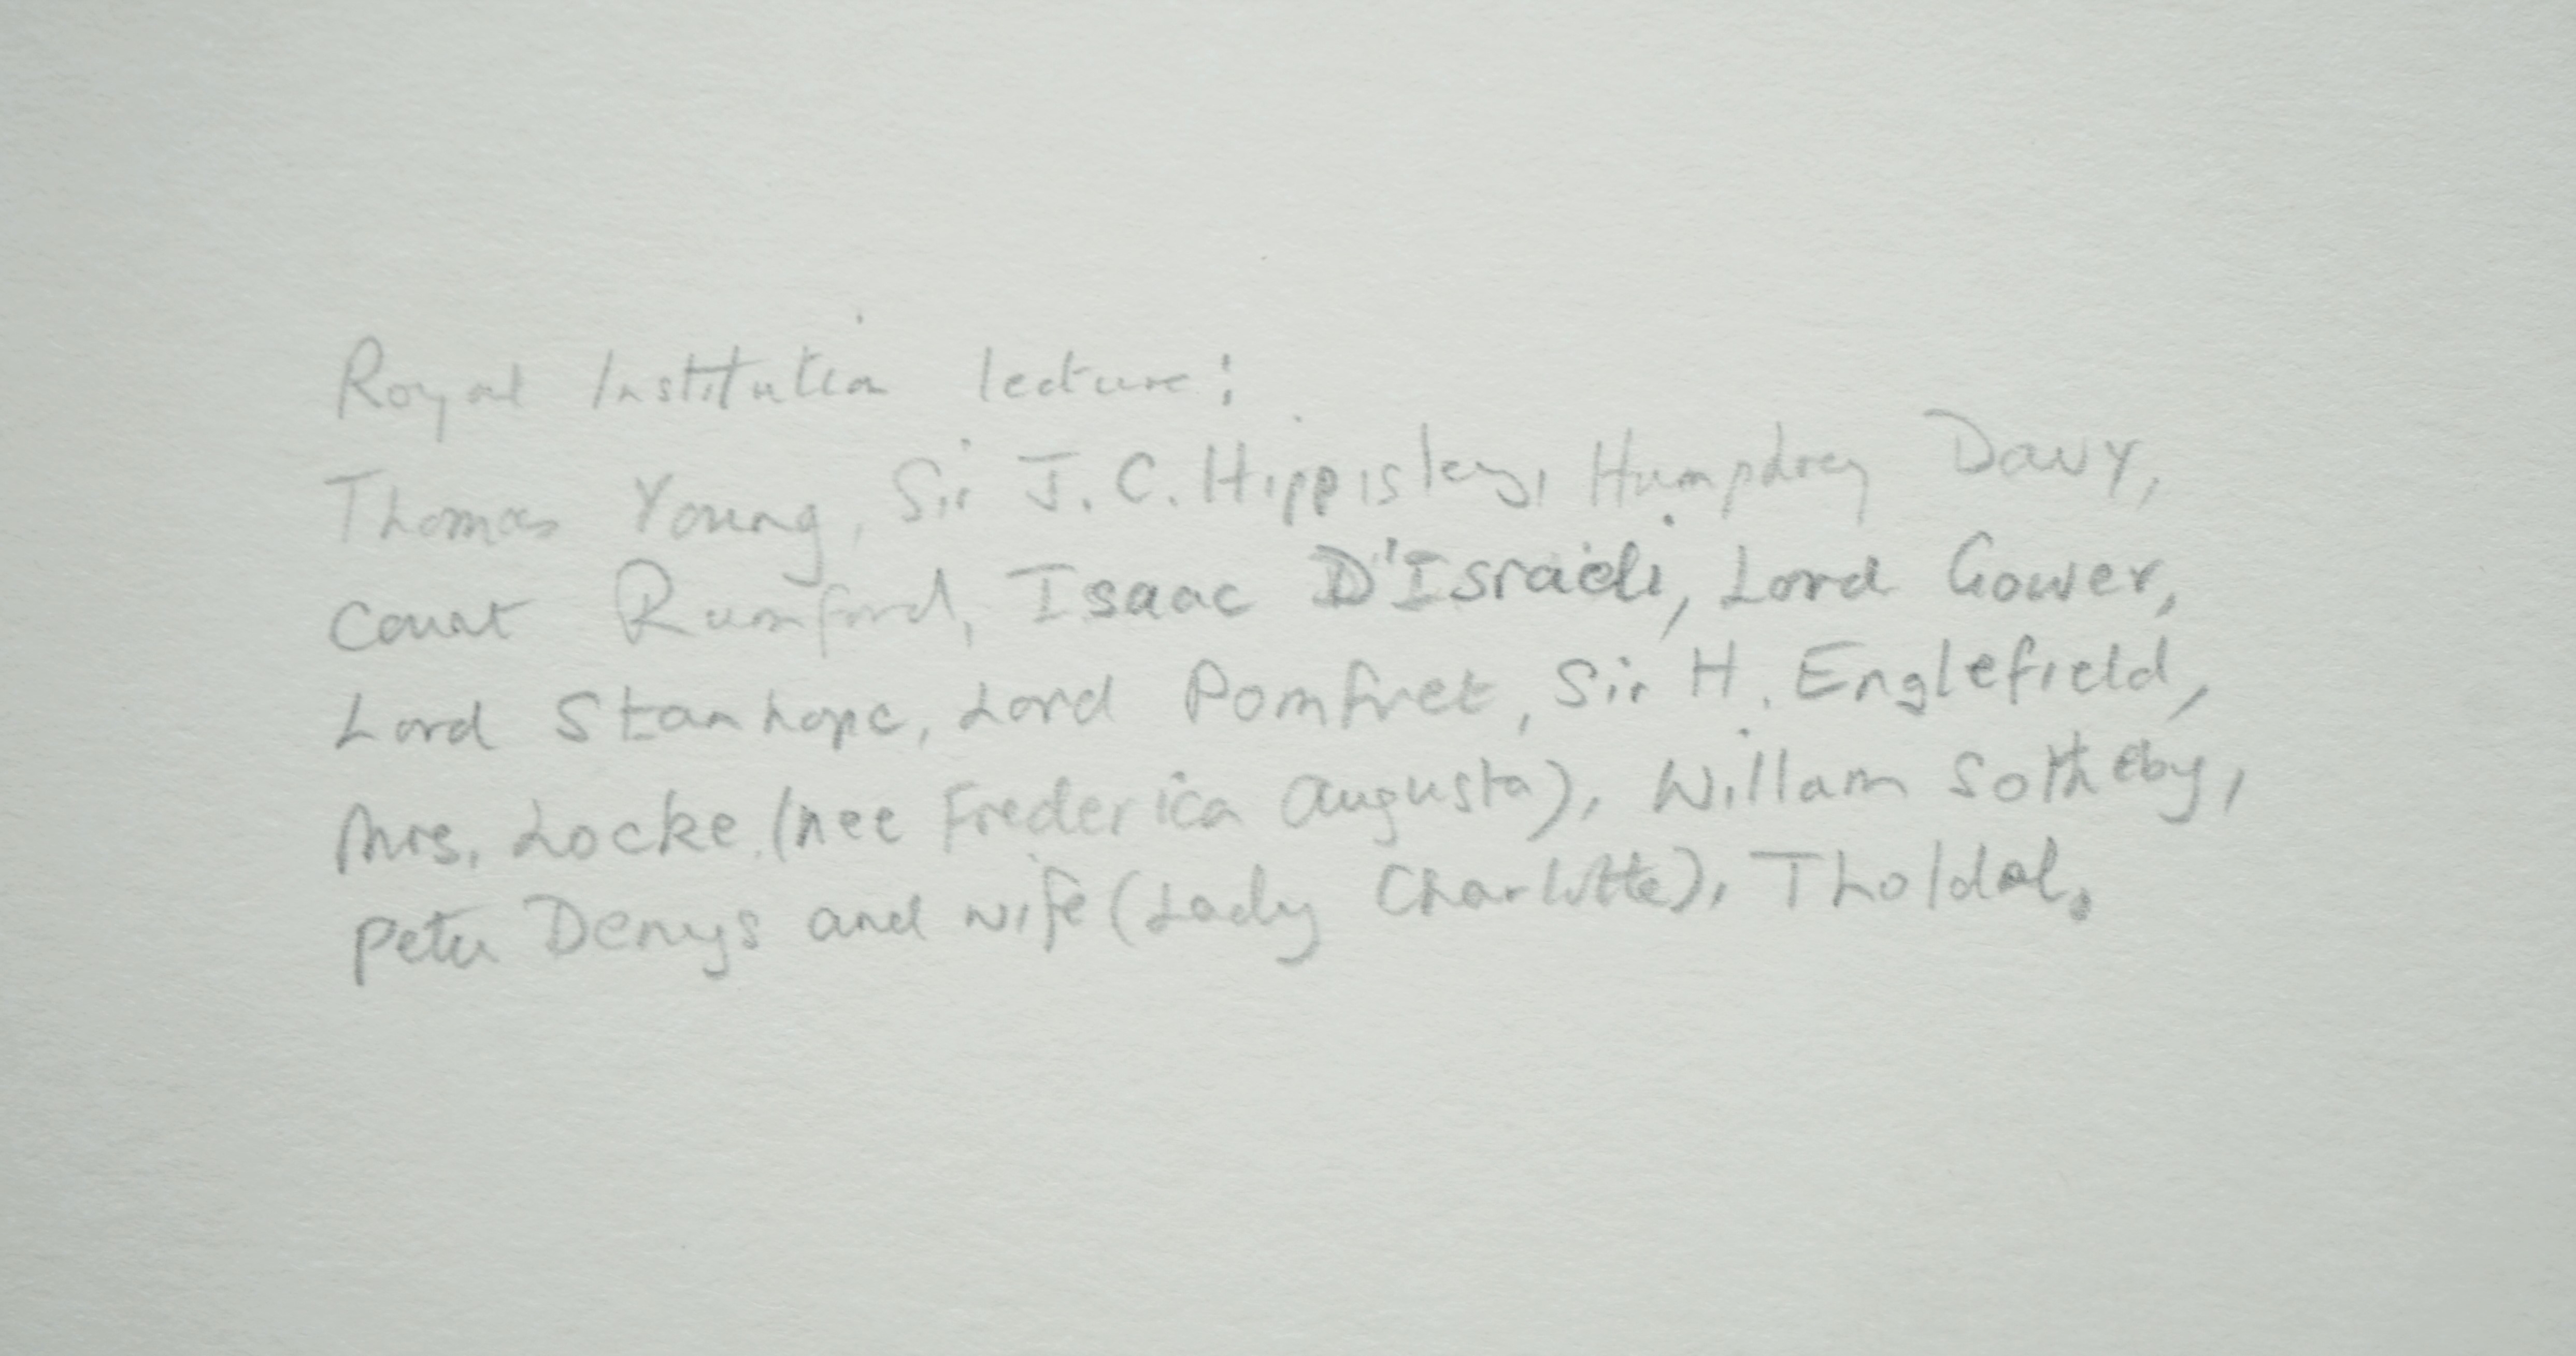 Royal Institution lecture:
Thomas Young, Sir J. C. Hippisley, Humphrey Davy,
Count Rumford, Isaac D'Israeli, Lord Gower,
Lord Stanhope, Lord Pomfret, Sir H. Englefield,
Mrs. Locke (nee Frederica Augusta), Willam Sotheby,
Peter Denys and wife (Lady Charlotte), Tholdal.